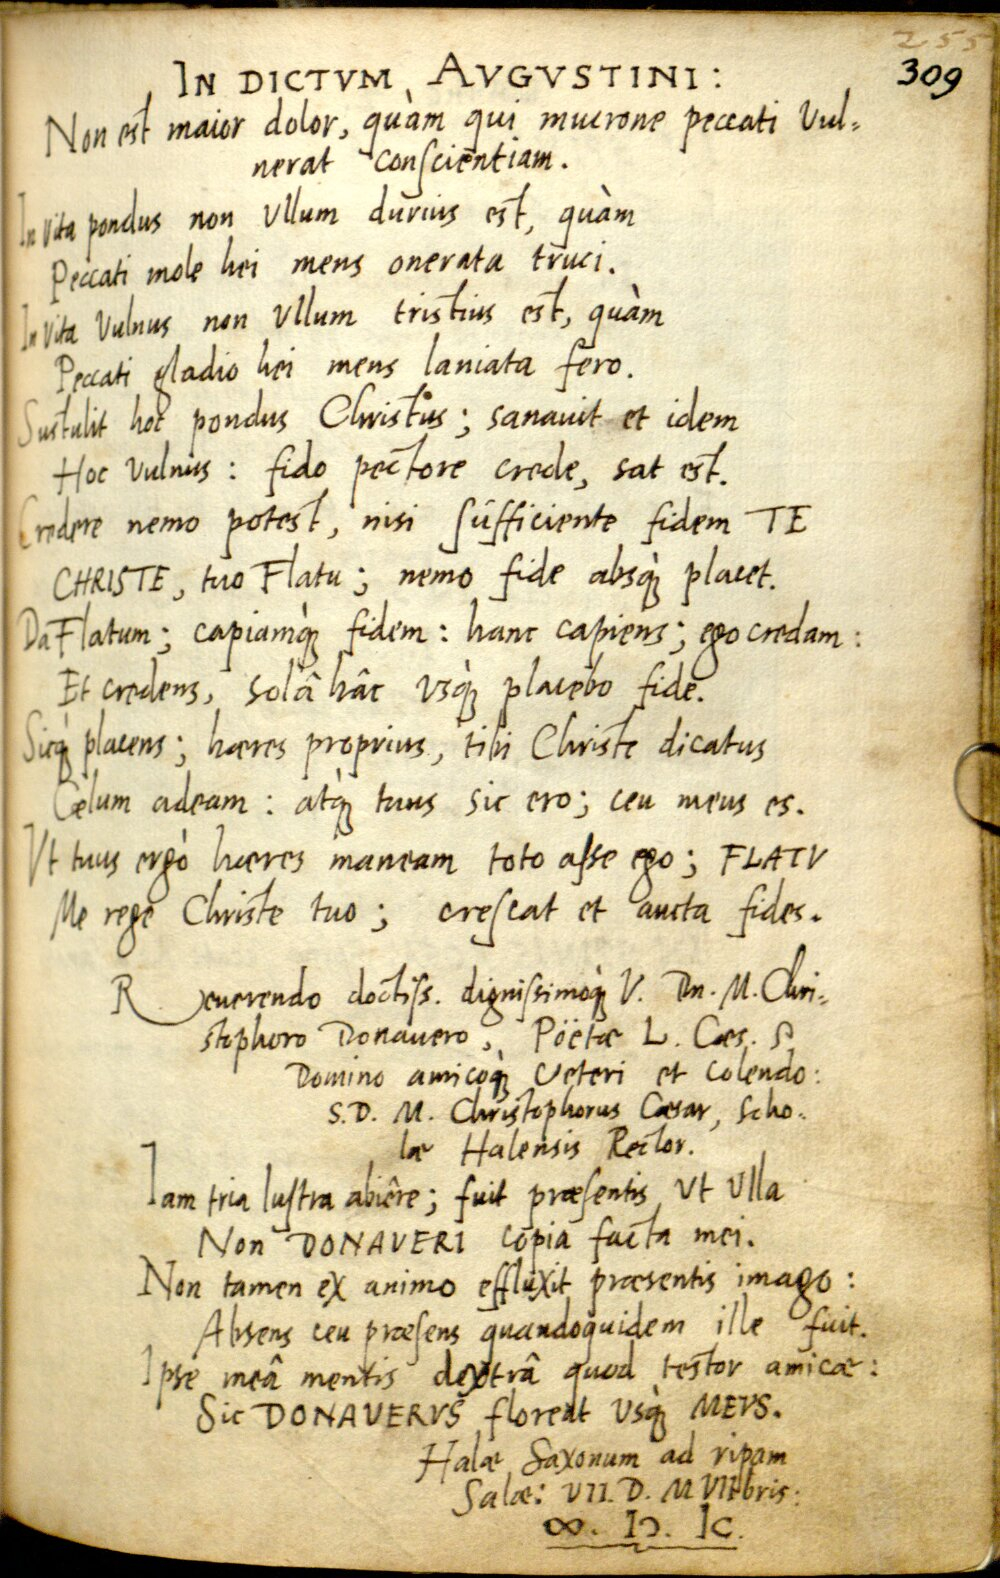 255
309
IN DICTVM AVGVSTINI:
Non est maior dolor, quàm qui mucrone peccati Vul-
nerat conscientiam.
In vita pondus non Vllum durius est, quàm
Peccati mole hei mens onerata truci.
In vita Vulnus non Vllum tristius est, quàm
Peccati gladio hei mens laniata fero.
Sustulit hoc pondus Christus; sanauit et idem
Hoc Vulnus: fido pectore crede, sat est.
Credere nemo potest, nisi sufficiente fidem TE
CHRISTE, tuo Flatu; nemo fide absq́; placet.
Da Flatum; capiamq́; fidem: hanc capiens; ego credam:
Et credens, solâ hâc vsq́; placebo fide.
Sicq́; placens; hæres proprius, tibi Christe dicatus
Cælum adeam: atq́; tuus sic ero; ceu meus es.
Vt tuus ergò hæres maneam toto asse ego; FLATV
Me rege Christe tuo; crescat et aucta fides.
Reuerendo doctiss. dignissimoq́; V. Dn. M. Chri-
stophoro Donauero, Pöëtæ L. Cæs. S
Domino amicoq́; Veteri et Colendo:
S.D. M. Christophorus Cæsar, Scho-
læ Halensis Rector.
Iam tria lustra abiêre; fuit præsentis Vt Vlla
Non DONAVERI copia facta mei.
Non tamen ex animo effluxit præsentis imago:
Absens ceu præsens quandoquidem ille fuit.
Ipse meâ mentis dextrâ quod testor amicæ:
Sic DONAVERVS floreat Vsq́; MEVS.
Halæ Saxonum ad ripam
Salæ: VII. D. M VIIbris:
∞. IↃ. IC.